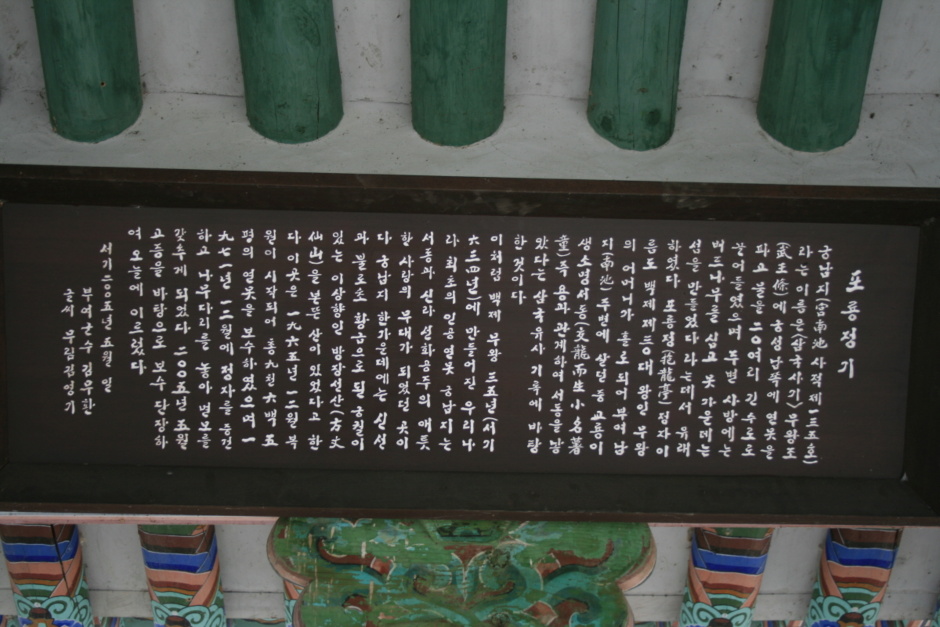 포룡정기
궁남지(宮南池 사적제一三五호)
라는이름은(삼국사기)무왕조
(武王條)에 궁성남쪽에 연못을
파고 물을 二0여리 긴 수로로
끌어들였으며 주변 사방에는
버드나무를 심고 못 가운데는
섬을 만들었다 라는데서 유래
하였다. 포룡정(抱龍亭) 정자이
름도 백제 제三0대 왕인 무왕
의 어머니가 홀로 되어 부여남
지(南池) 주변에 살던중 교룡이
생소명서동(交龍而生小名薯
童)즉 용과 관계하여 서동을 낳
았다는 삼국유사 기록에 바탕
한 것이다
이처럼 백제 무왕 三五년(서기
六三四년)에 만들어진 우리나
라 최초의 인공연못 궁남지는
서동과 신라 선화공주의 애틋
한 사랑의 무대가 되었던 곳이
다 궁남지 한가운데에는 신선
과 불로초 황금으로 된 궁궐이
있는 이상향인 방장선산(方丈
仙山)을 본뜬 산이 있었다고 한
다 이곳은 一九六五년 一二월 복
원이 시작되어 총 九천六백五
평의 연못을 보수하였으며 一
九七一년 一二월에 정자를 동건
하고 나무다리를 놓아 면모를
갖추게 되었다 二00五년 五월
고증을 바탕으로 보수 단장하
여 오늘에 이르렀다
서기二00五년 五월 일
부여군수 김무환
글씨 우림 김영기